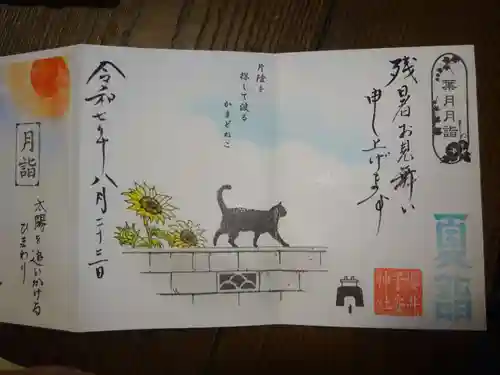 葉月月詣
残暑お見舞い
申し上げます
夏詣
櫻井
子安
神社
片陰を
探して渡る
かまどねこ
令和七年八月二十三日
月詣
太陽を追いかける
ひまわり